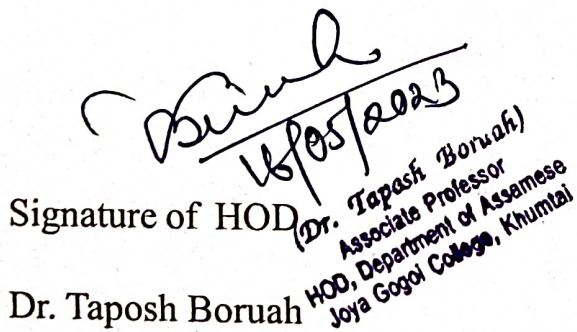 16/05/2023
Signature of HOD
(Dr. Tapash Boruah)
Associate Professor
HOD, Department of Assamese
Joya Gogoi College, Khumtai
Dr. Taposh Boruah